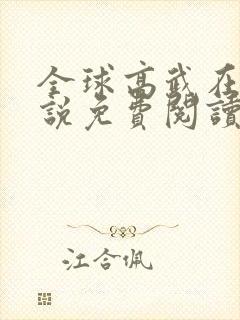 全球高武在
說免費閱讀
江合佩